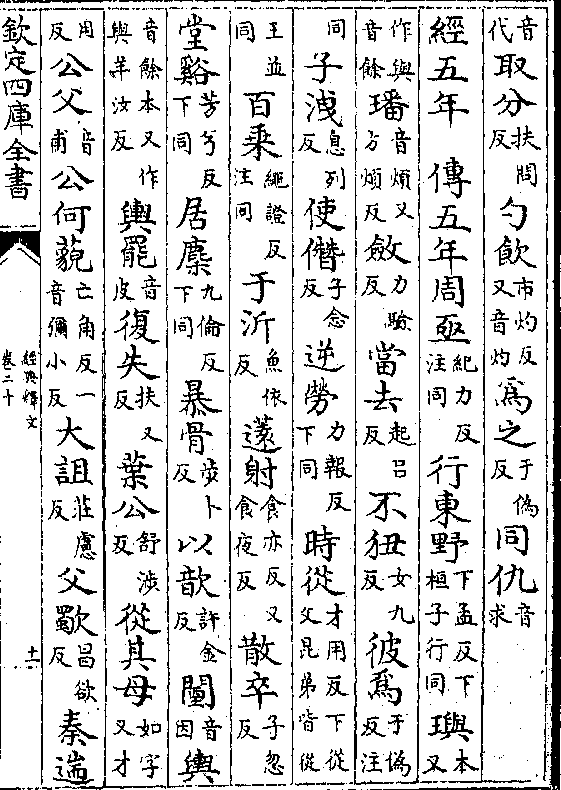 音代取分扶問反勺飲市灼反又音灼爲之于偽反同仇音求
經五年　傳五年周亟紀力反注同行東野下孟反下桓子行同璵本又
作與音餘璠音煩又方煩反斂力驗反當去起呂反不狃女九反彼爲于偽反注
同子洩息列反使僭子念反逆勞力報反下同時從才用反下從父昆弟皆從
王並同百乘繩證反注同于沂魚依反薳射食亦反又食夜反散卒子忽反
堂谿芳兮反下同居麇九倫反下同暴骨步卜反以歆許金反闉音因輿
音餘本又作與羊汝反輿罷音皮復失扶又反葉公舒涉反從其母如字又才
用反公父音甫公何藐亡角反一音彌小反大詛莊慮反父歜昌欲反秦遄
欽定四庫全書
經典釋文
卷二十
十一